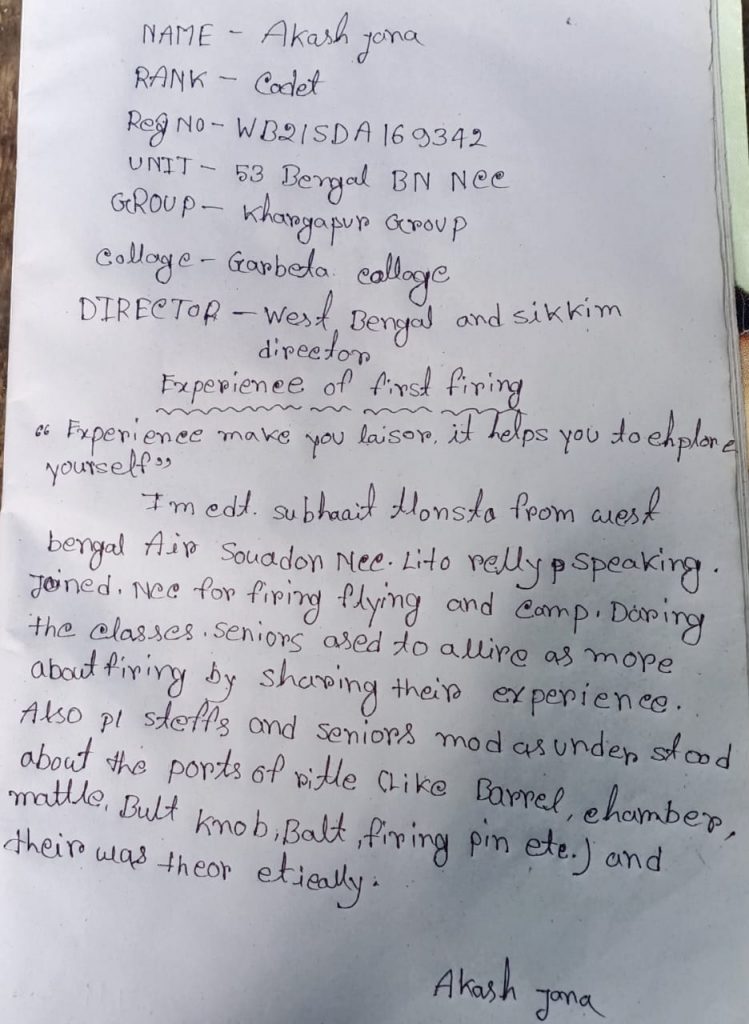 NAME - Akash Jana
RANK - Cadet
Reg NO - WB21SDA169342
UNIT - 53 Bengal BN Ncc
GROUP - Khargapur Group
Collage - Garbeta collage
DIRECTOR - West Bengal and sikkim
director
Experience of first firing
"Experience make you laisor, it helps you to ehplore
yourself"
I'm cdt. subhaait Monsta from west
bengal Air Souadon Ncc. Lito relly p speaking.
Joined. Ncc for firing flying and camp. Daring
the classes. seniors ased to allire as more
about firing by sharing their experience.
Also pl steffs and seniors mod as under stood
about the ports of ritle (Like Barrel, chamber,
mattle, Bult knob, Balt, firing pin etc.) and
their was theor etically.
Akash Jana